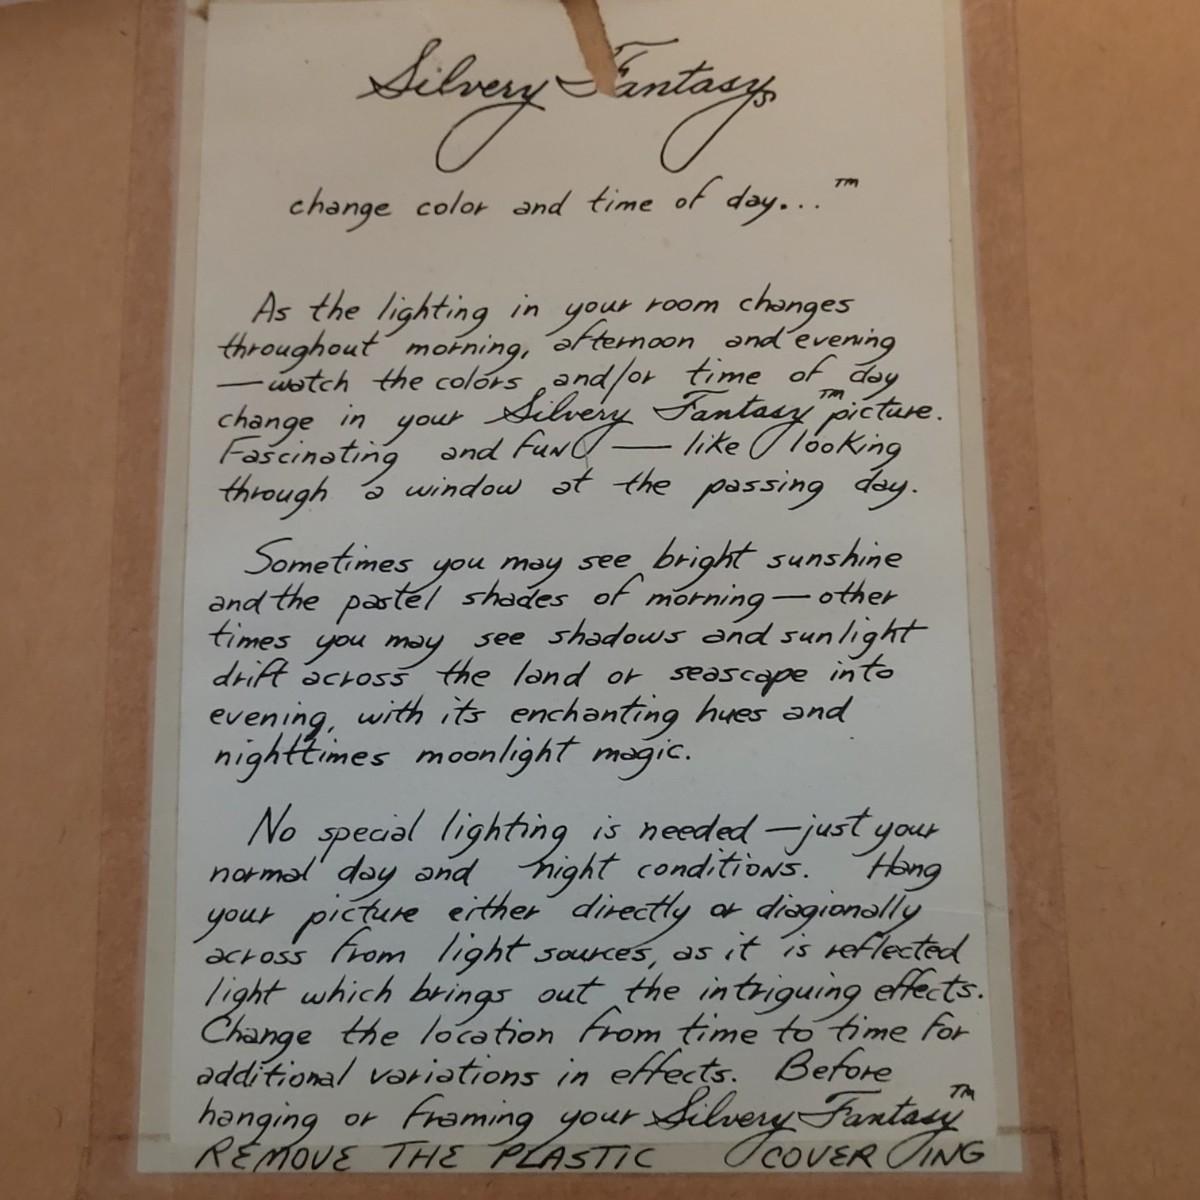 Silvery Fantasys
change color and time of day...™
As the lighting in your room changes
throughout morning, afternoon and evening
—watch the colors and/or time of day
change in your Silvery Fantasy™ picture.
Fascinating and FUN — like looking
through a window at the passing day.
Sometimes you may see bright sunshine
and the pastel shades of morning — other
times you may see shadows and sunlight
drift across the land or seascape into
evening, with its enchanting hues and
nighttimes moonlight magic.
No special lighting is needed — just your
normal day and night conditions. Hang
your picture either directly or diagionally
across from light sources, as it is reflected
light which brings out the intriguing effects.
Change the location from time to time for
additional variations in effects. Before
hanging or framing your Silvery Fantasy™
REMOVE THE PLASTIC COVERING